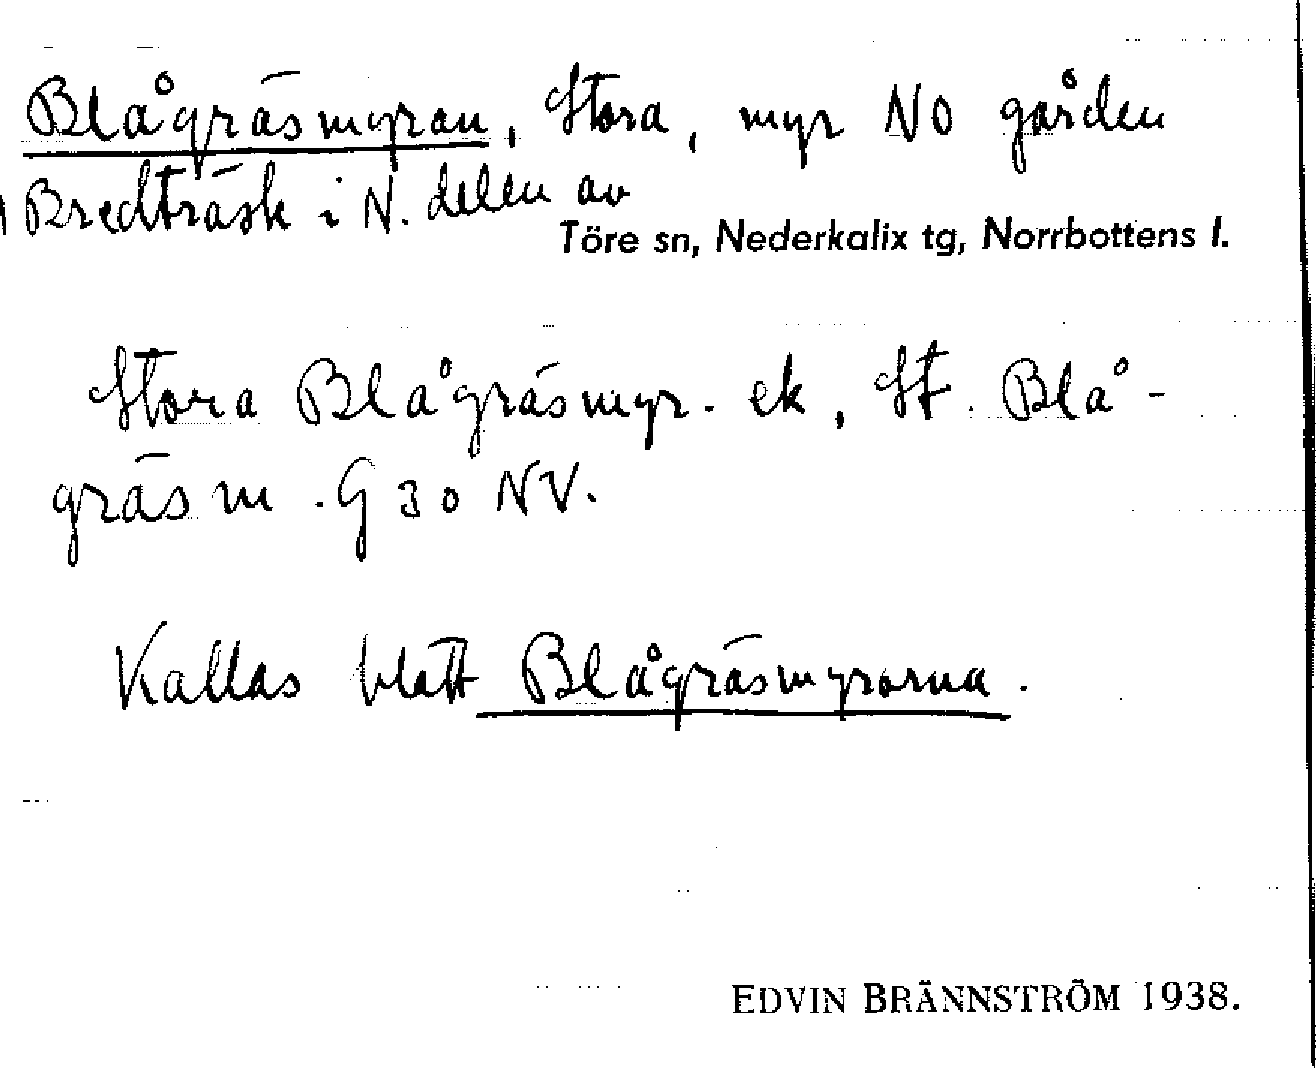 Blågräsmyran, Stora, myr NO gården
Bredträsk i N. delen av
Töre sn, Nederkalix tg, Norrbottens l.
Stora Blågräsmyr. ek, St. Blå-
gräsm. G 30 NV.
Kallas blott Blågräsmyrorna.
EDVIN BRÄNNSTRÖM 1938.